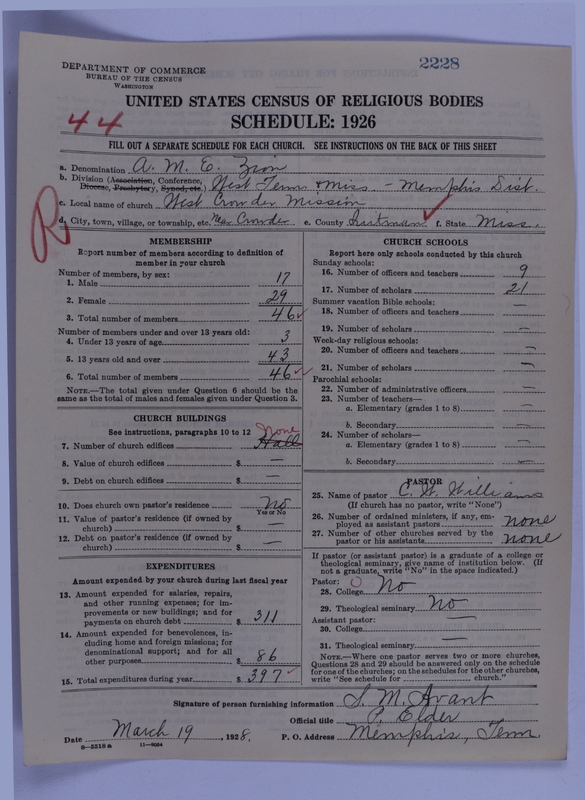 2228
DEPARTMENT OF COMMERCE
BUREAU OF THE CENSUS
WASHINGTON
UNITED STATES CENSUS OF RELIGIOUS BODIES
44
SCHEDULE: 1926
FILL OUT A SEPARATE SCHEDULE FOR EACH CHURCH. SEE INSTRUCTIONS ON THE BACK OF THIS SHEET
a. Denomination A. M. E. Zion
b. Division (Association, Conference, Diocese, Presbytery, Synod, etc.) West Tenn & Miss - Memphis Dist.
c. Local name of church West Crowder Mission
R
d. City, town, village, or township, etc. Near Crowder e. County Quitman f. State Miss.
MEMBERSHIP
Report number of members according to definition of
member in your church
Number of members, by sex:
1. Male 17
2. Female 29
3. Total number of members 46
Number of members under and over 13 years old:
4. Under 13 years of age 3
5. 13 years old and over 43
6. Total number of members 46
NOTE.—The total given under Question 6 should be
same as the total of males and females given under Question 3.
CHURCH BUILDINGS
See instructions, paragraphs 10 to 12 none
7. Number of church edifices Hall
8. Value of church edifices $ —
9. Debt on church edifices $ —
10. Does church own pastor's residence no
Yes or No
11. Value of pastor's residence (if owned by
church) $ —
12. Debt on pastor's residence (if owned by
church) $ —
EXPENDITURES
Amount expended by your church during last fiscal year
13. Amount expended for salaries, repairs,
and other running expenses; for im-
provements or new buildings; and for
payments on church debt $ 311
14. Amount expended for benevolences, in-
cluding home and foreign missions; for
denominational support; and for all
other purposes $ 86
15. Total expenditures during year $ 397
CHURCH SCHOOLS
Report here only schools conducted by this church
Sunday schools:
16. Number of officers and teachers 9
17. Number of scholars 21
Summer vacation Bible schools:
18. Number of officers and teachers —
19. Number of scholars —
Week-day religious schools:
20. Number of officers and teachers —
21. Number of scholars —
Parochial schools:
22. Number of administrative officers —
23. Number of teachers—
a. Elementary (grades 1 to 8) —
b. Secondary —
24. Number of scholars—
a. Elementary (grades 1 to 8) —
b. Secondary —
PASTOR
25. Name of pastor C. W. Williams
(If church has no pastor, write "None")
26. Number of ordained ministers, if any, em-
ployed as assistant pastors none
27. Number of other churches served by the
pastor or his assistants none
If pastor (or assistant pastor) is a graduate of a college or
theological seminary, give name of institution below. (If
not a graduate, write "No" in the space indicated.)
Pastor:
28. College No
29. Theological seminary No
Assistant pastor:
30. College —
31. Theological seminary —
NOTE.—Where one pastor serves two or more churches,
Questions 28 and 29 should be answered only on the schedule
for one of the churches; on the schedules for the other churches,
write "See schedule for church."
Signature of person furnishing information S. M. Avant
Official title P. Elder
Date March 19, 1928. P. O. Address Memphis, Tenn.
8-5318 a 11-9034